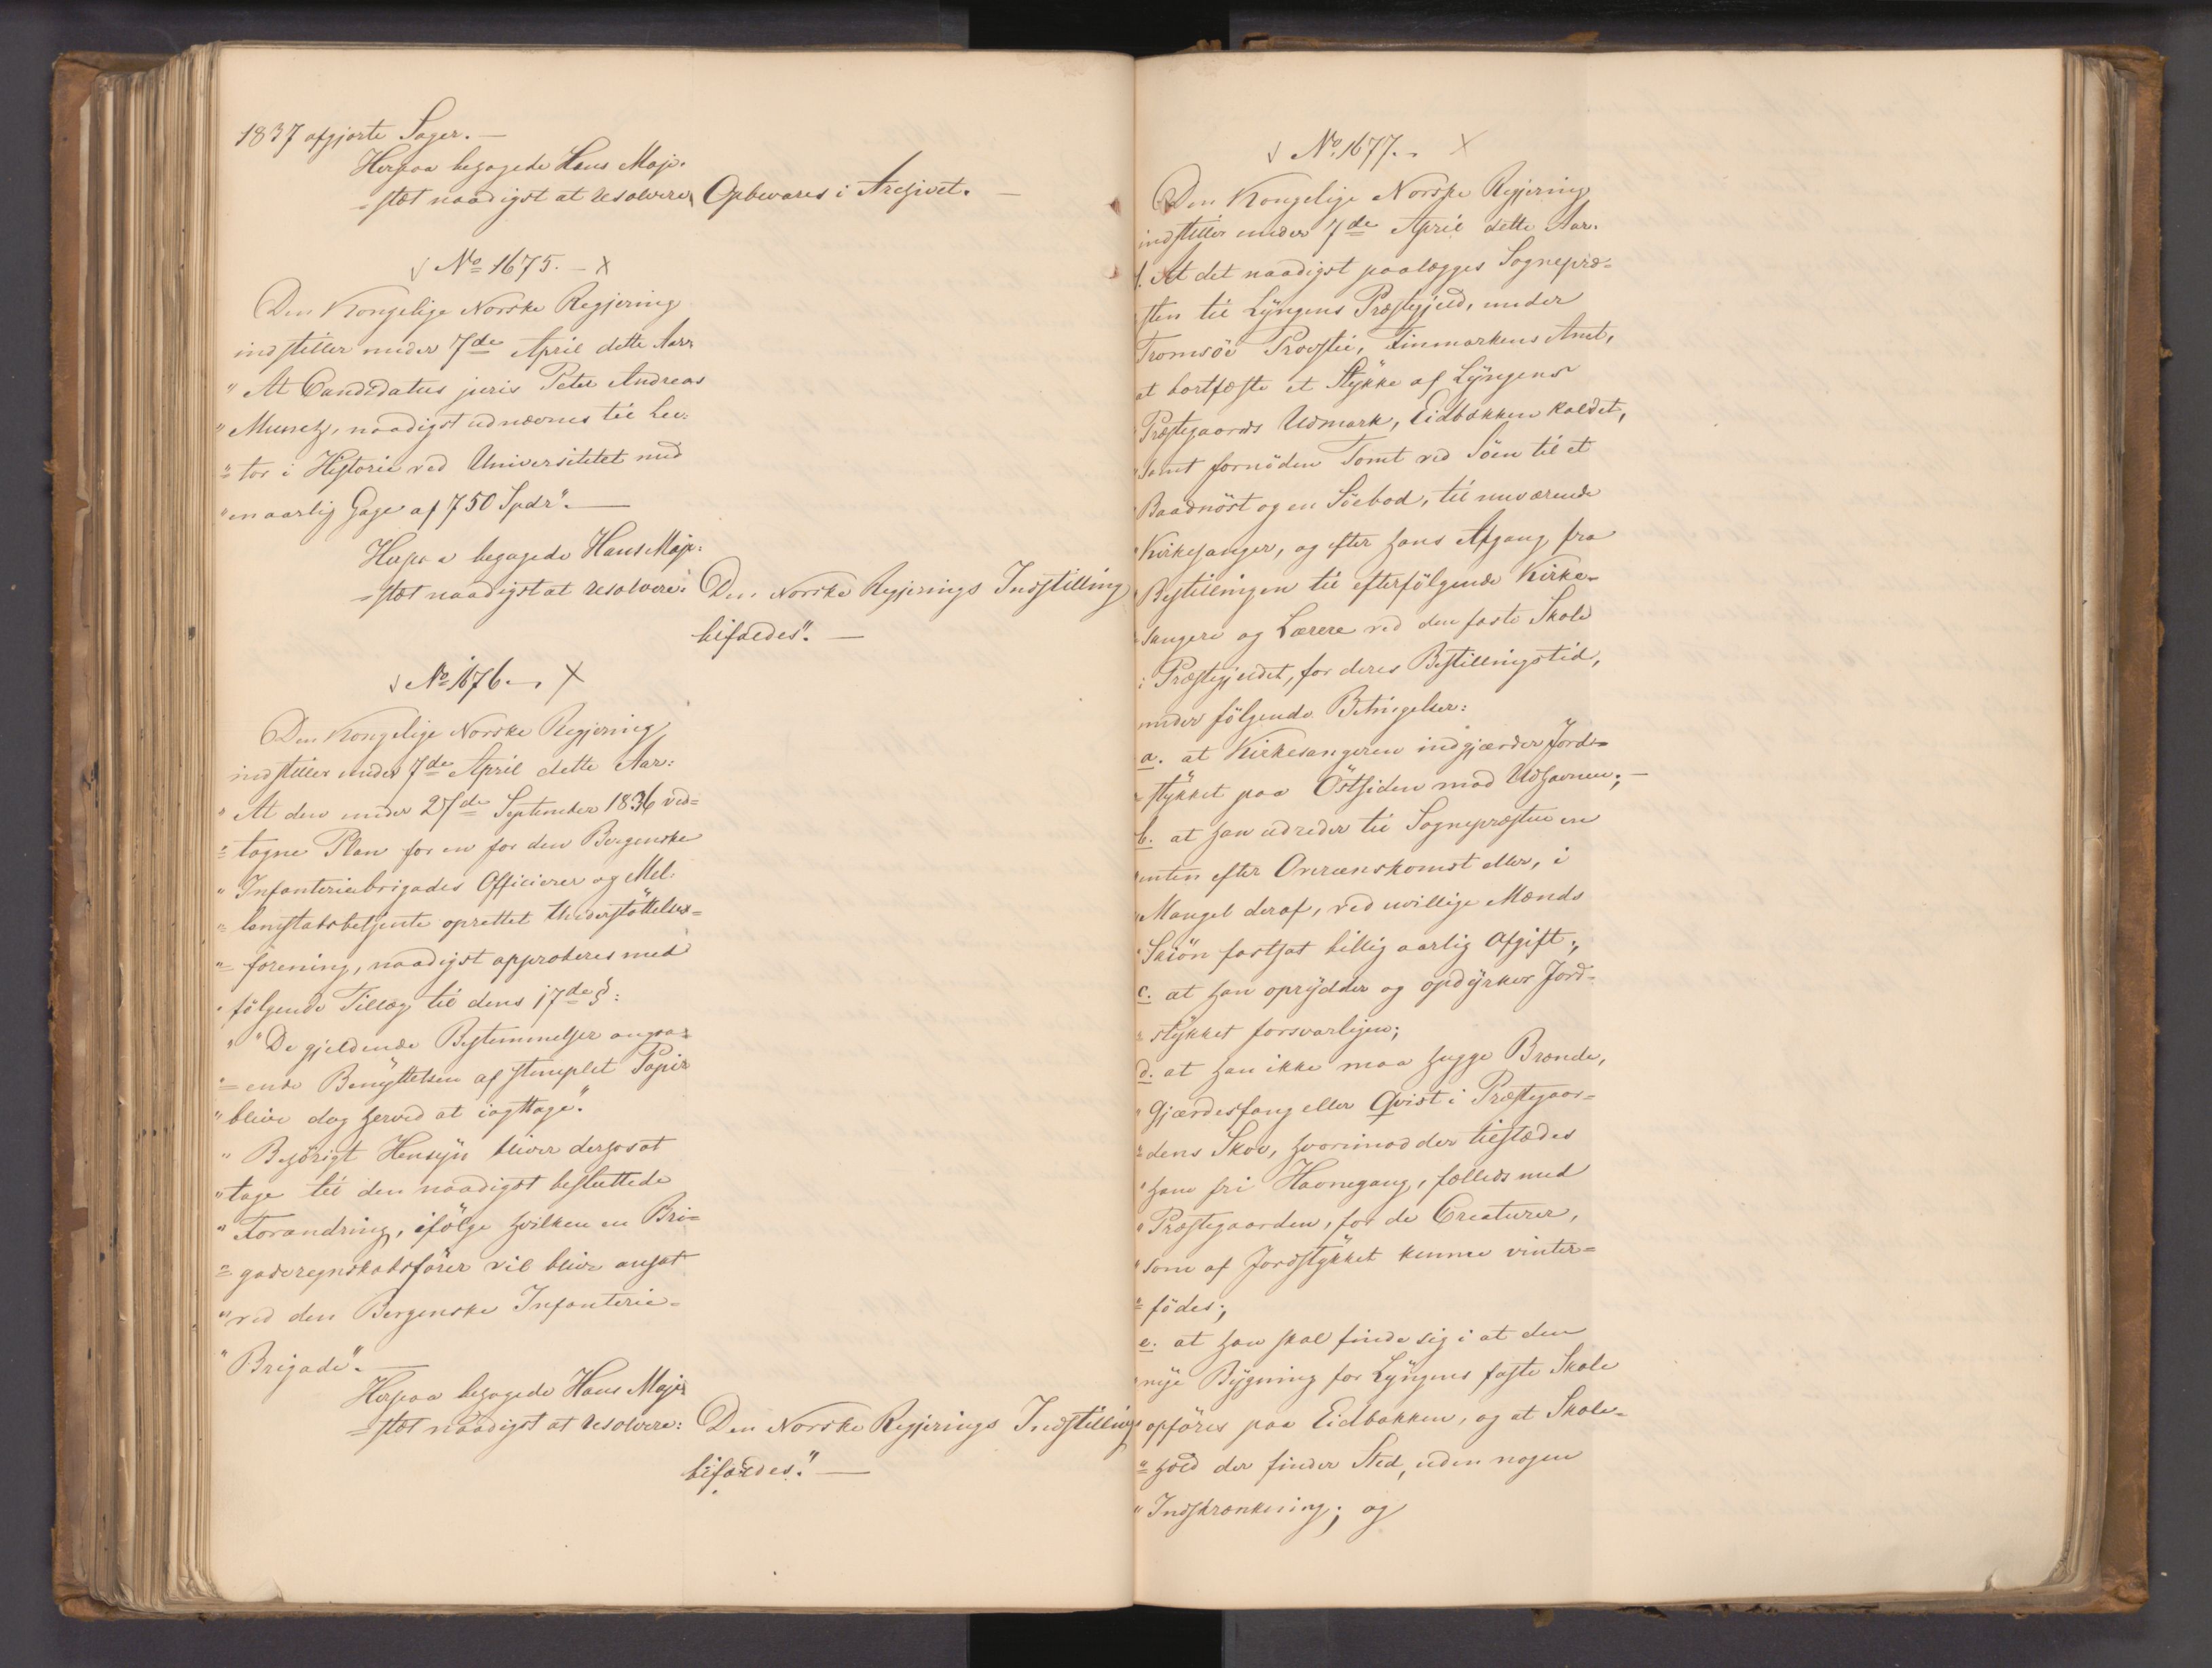 1837 afgjorte Sager. —
Herpaa behagede Hans Maje-
=stæt naadigst at resolvere: Opbevares i Archivet. —
√ No 1675. — x
Den Kongelige Norske Regjering
indstiller under 7de April dette Aar:
" At Candidatus juris Peter Andreas
" Munch, naadigst udnævnes til Lec-
"=tor i Historie ved Universitetet med
" en aarlig Gage af 750 Spdr". —
Herpaa behagede Hans Maje-
=stæt naadigst at resolvere: Den Norske Regjerings Indstilling
bifaldes". —
√ No 1676. — x
Den Kongelige Norske Regjering
indstiller under 7de April dette Aar:
" At den under 27de September 1836 ved=
"=tagne Plan for en for den Bergenske
" Infanteriebrigades Officierer og Mel-
"=lemstabsbetjente oprettet Understöttelses=
"=forening, naadigst approberes med
" fölgende Tillæg til dens 17de §:
" "De gjeldende Bestemmelser angaa-
"=ende Benÿttelsen af stemplet Papir
" blive dog herved at iagttage".
" Behörigt Hensÿn bliver derhos at
" tage til den naadigst besluttede
" Forandring, ifölge hvilken en Bri=
"=gaderegnskabsförer vil blive ansat
" ved den Bergenske Infanterie=
" Brigade". —
Herpaa behagede Hans Maje-
=stæt naadigst at resolvere: Den Norske Regjerings Indstilling
bifaldes." —
√ No 1677. — x
Den Kongelige Norske Regjering
indstiller under 7de April dette Aar.
1. At det naadigst paalægges Sognepræ=
sten til Lÿngens Præstegjeld, under
Tromsöe Provstie, Finmarkens Amt,
at bortfæste et Stÿkke af Lÿngens
" Præstegaards Udmark, Eidbakken kaldet,
" samt fornöden Tomt ved Söen til et
" Baadnöst og en Söebod, til nuværende
" Kirkesanger, og efter hans Afgang fra
" Bestillingen til efterfölgende Kirke=
" sangere og Lærere ved den faste Skole
i Præstegjeldet, for deres Bestillingstid,
under fölgende Betingelser:
a. at Kirkesangeren indgjærder Jord=
"=stÿkket paa Östsiden mod Udhavnen; —
b. at han udreder til Sognepræsten en
" enten efter Overeenskomst eller, i
" Mangel deraf, ved uvillige Mænds
" Skiön fastsat billig aarlig Afgift;
c. at han oprÿdder og opdÿrker Jord-
" stÿkket forsvarligen;
d. at han ikke maa hugge Brænde,
" Gjærdesfang eller Qvist i Præstegaar=
"=dens Skov, hvorimod der tilstædes
" ham fri Havnegang, fælleds med
" Præstegaarden, for de Creaturer,
" som af Jordstÿkket kunne vinter=
"=födes;
e. at han skal finde sig i at den
" nye Bÿgning for Lyngens faste Skole
opföres paa Eidbakken, og at Skole=
"=hold der finder Sted, uden nogen
" Indskrænkning; og